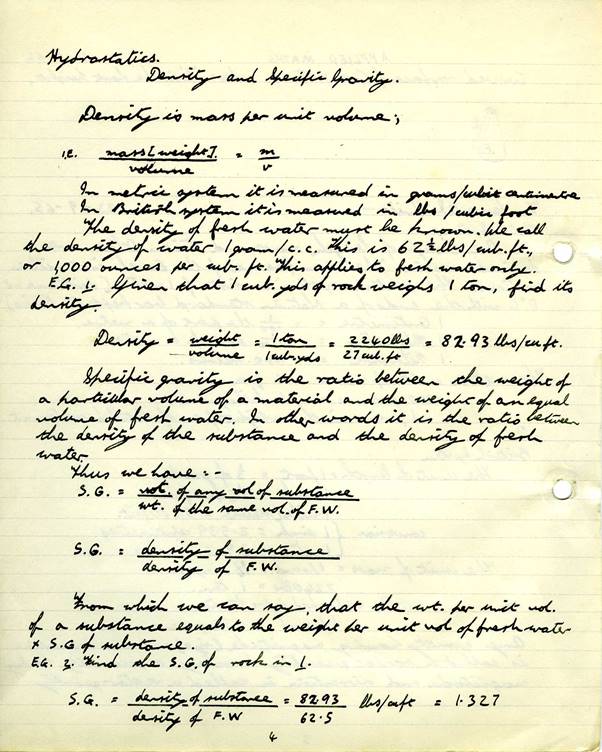 Hydrostatics.
Density and Specific Gravity.
Density is mass per unit volume;
i.e. mass [weight]. / volume = m / v
In metric system it is measured in grams/cubic centimetre
In British system it is measured in lbs / cubic foot
The density of fresh water must be known. We call
the density of water 1 gram/c.c. This is 62½ lbs/cub.ft.,
or 1,000 ounces per cub. ft. This applies to fresh water only.
E.G. 1. Given that 1 cub. yds of rock weighs 1 ton, find its
density.
Density = weight / volume = 1 ton / 1 cub. yds = 2240 lbs / 27 cub. ft = 82.93 lbs/cu ft.
Specific gravity is the ratio between the weight of
a particular volume of a material and the weight of an equal
volume of fresh water. In other words it is the ratio between
the density of the substance and the density of fresh
water
Thus we have :-
S.G. = wt. of any vol of substance / wt. of the same vol. of F.W.
S.G. = density of substance / density of F.W.
From which we can say, that the wt. per unit vol.
of a substance equals to the weight per unit vol of fresh water
x S.G of substance.
E.G. 2. Find the S.G. of rock in 1.
S.G. = density of substance / density of F.W = 82.93 / 62.5 lbs/cu ft = 1.327
4